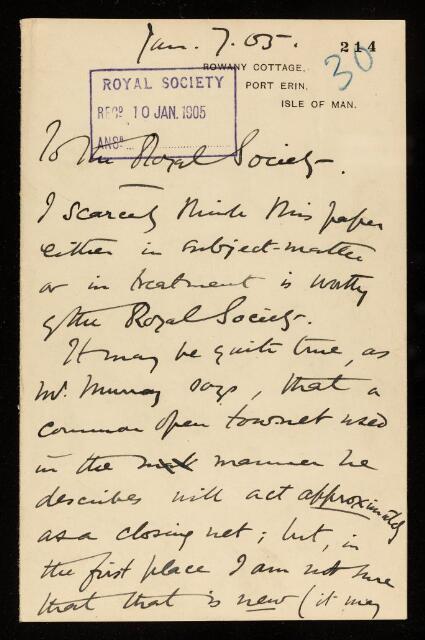 Jan. 7. 05.
214
30
ROWANY COTTAGE,
PORT ERIN,
ISLE OF MAN.
ROYAL SOCIETY
RECD. 10 JAN. 1905
ANSD.
To the Royal Society.
I scarcely think this paper
either in subject-matter
or in treatment is worthy
of the Royal Society.
It may be quite true, as
Mr. Murray says, that a
common open townet used
in the manner he
describes will act approximately
as a closing net; but, in
the first place I am not sure
that that is new (it may